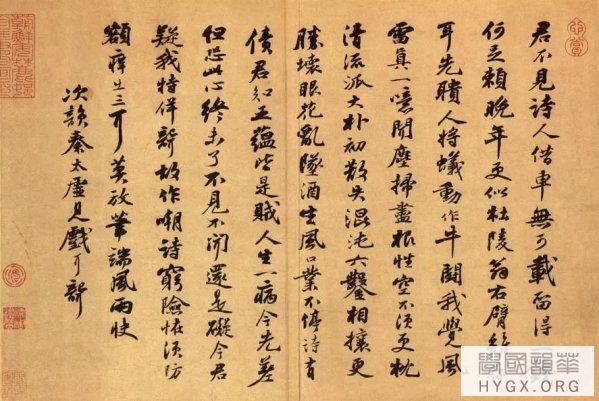 君不見詩人借車無可載留得
何足賴晚年更似杜陵翁右臂
耳先聵人將蟻動作牛鬭我覺風
雷真一噫聞塵掃盡根性空不須更枕
清流派大朴初散失混沌六鑿相攘更
勝壞眼花亂墜酒生風口業不停詩有
債君知五蘊皆是賊人生一病今先差
但恐此心終未了不見不聞還是礙今君
疑我特佯聾故作嘲詩窮險怪須防
額痒出三耳莫放筆端風雨快
次韻秦太虛見戲耳聾
學國韻華
HYGX.ORG